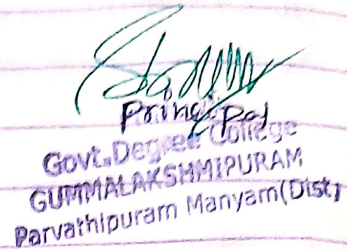 Principal
Govt. Degree College
GUMMALAKSHMIPURAM
Parvathipuram Manyam(Dist)